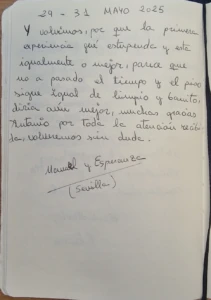 29 - 31 MAYO 2025
Y volvimos, por que la primera
experiencia fue estupenda y esta
igualmente o mejor, parece que
no a pasado el tiempo y el piso
sigue igual de limpio y bonito,
diría aún mejor, muchas gracias
Antonio por toda la atención recibi-
da, volveremos sin duda.
Manuel y Esperanza
(Sevilla)